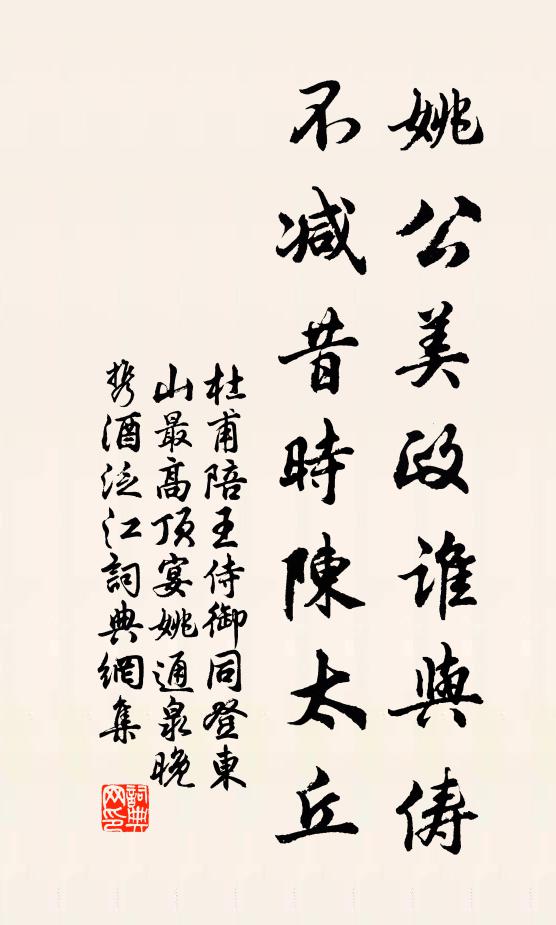 姚公美政誰與儔
不减昔時陳太丘
杜甫陪王侍御同登東
山最高頂宴姚通泉晚
携酒泛江詞典網集
詞典
网印